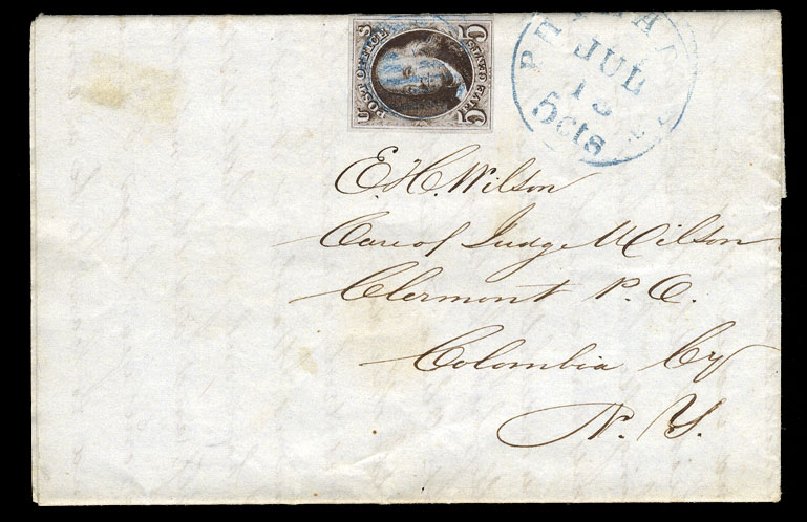 POST OFFICE
FIVE CENTS
U S
5 5
JUL
5cts
E. H. Wilson
Care of Judge Wilson
Clermont P. O.
Colombia Cy
N. Y.